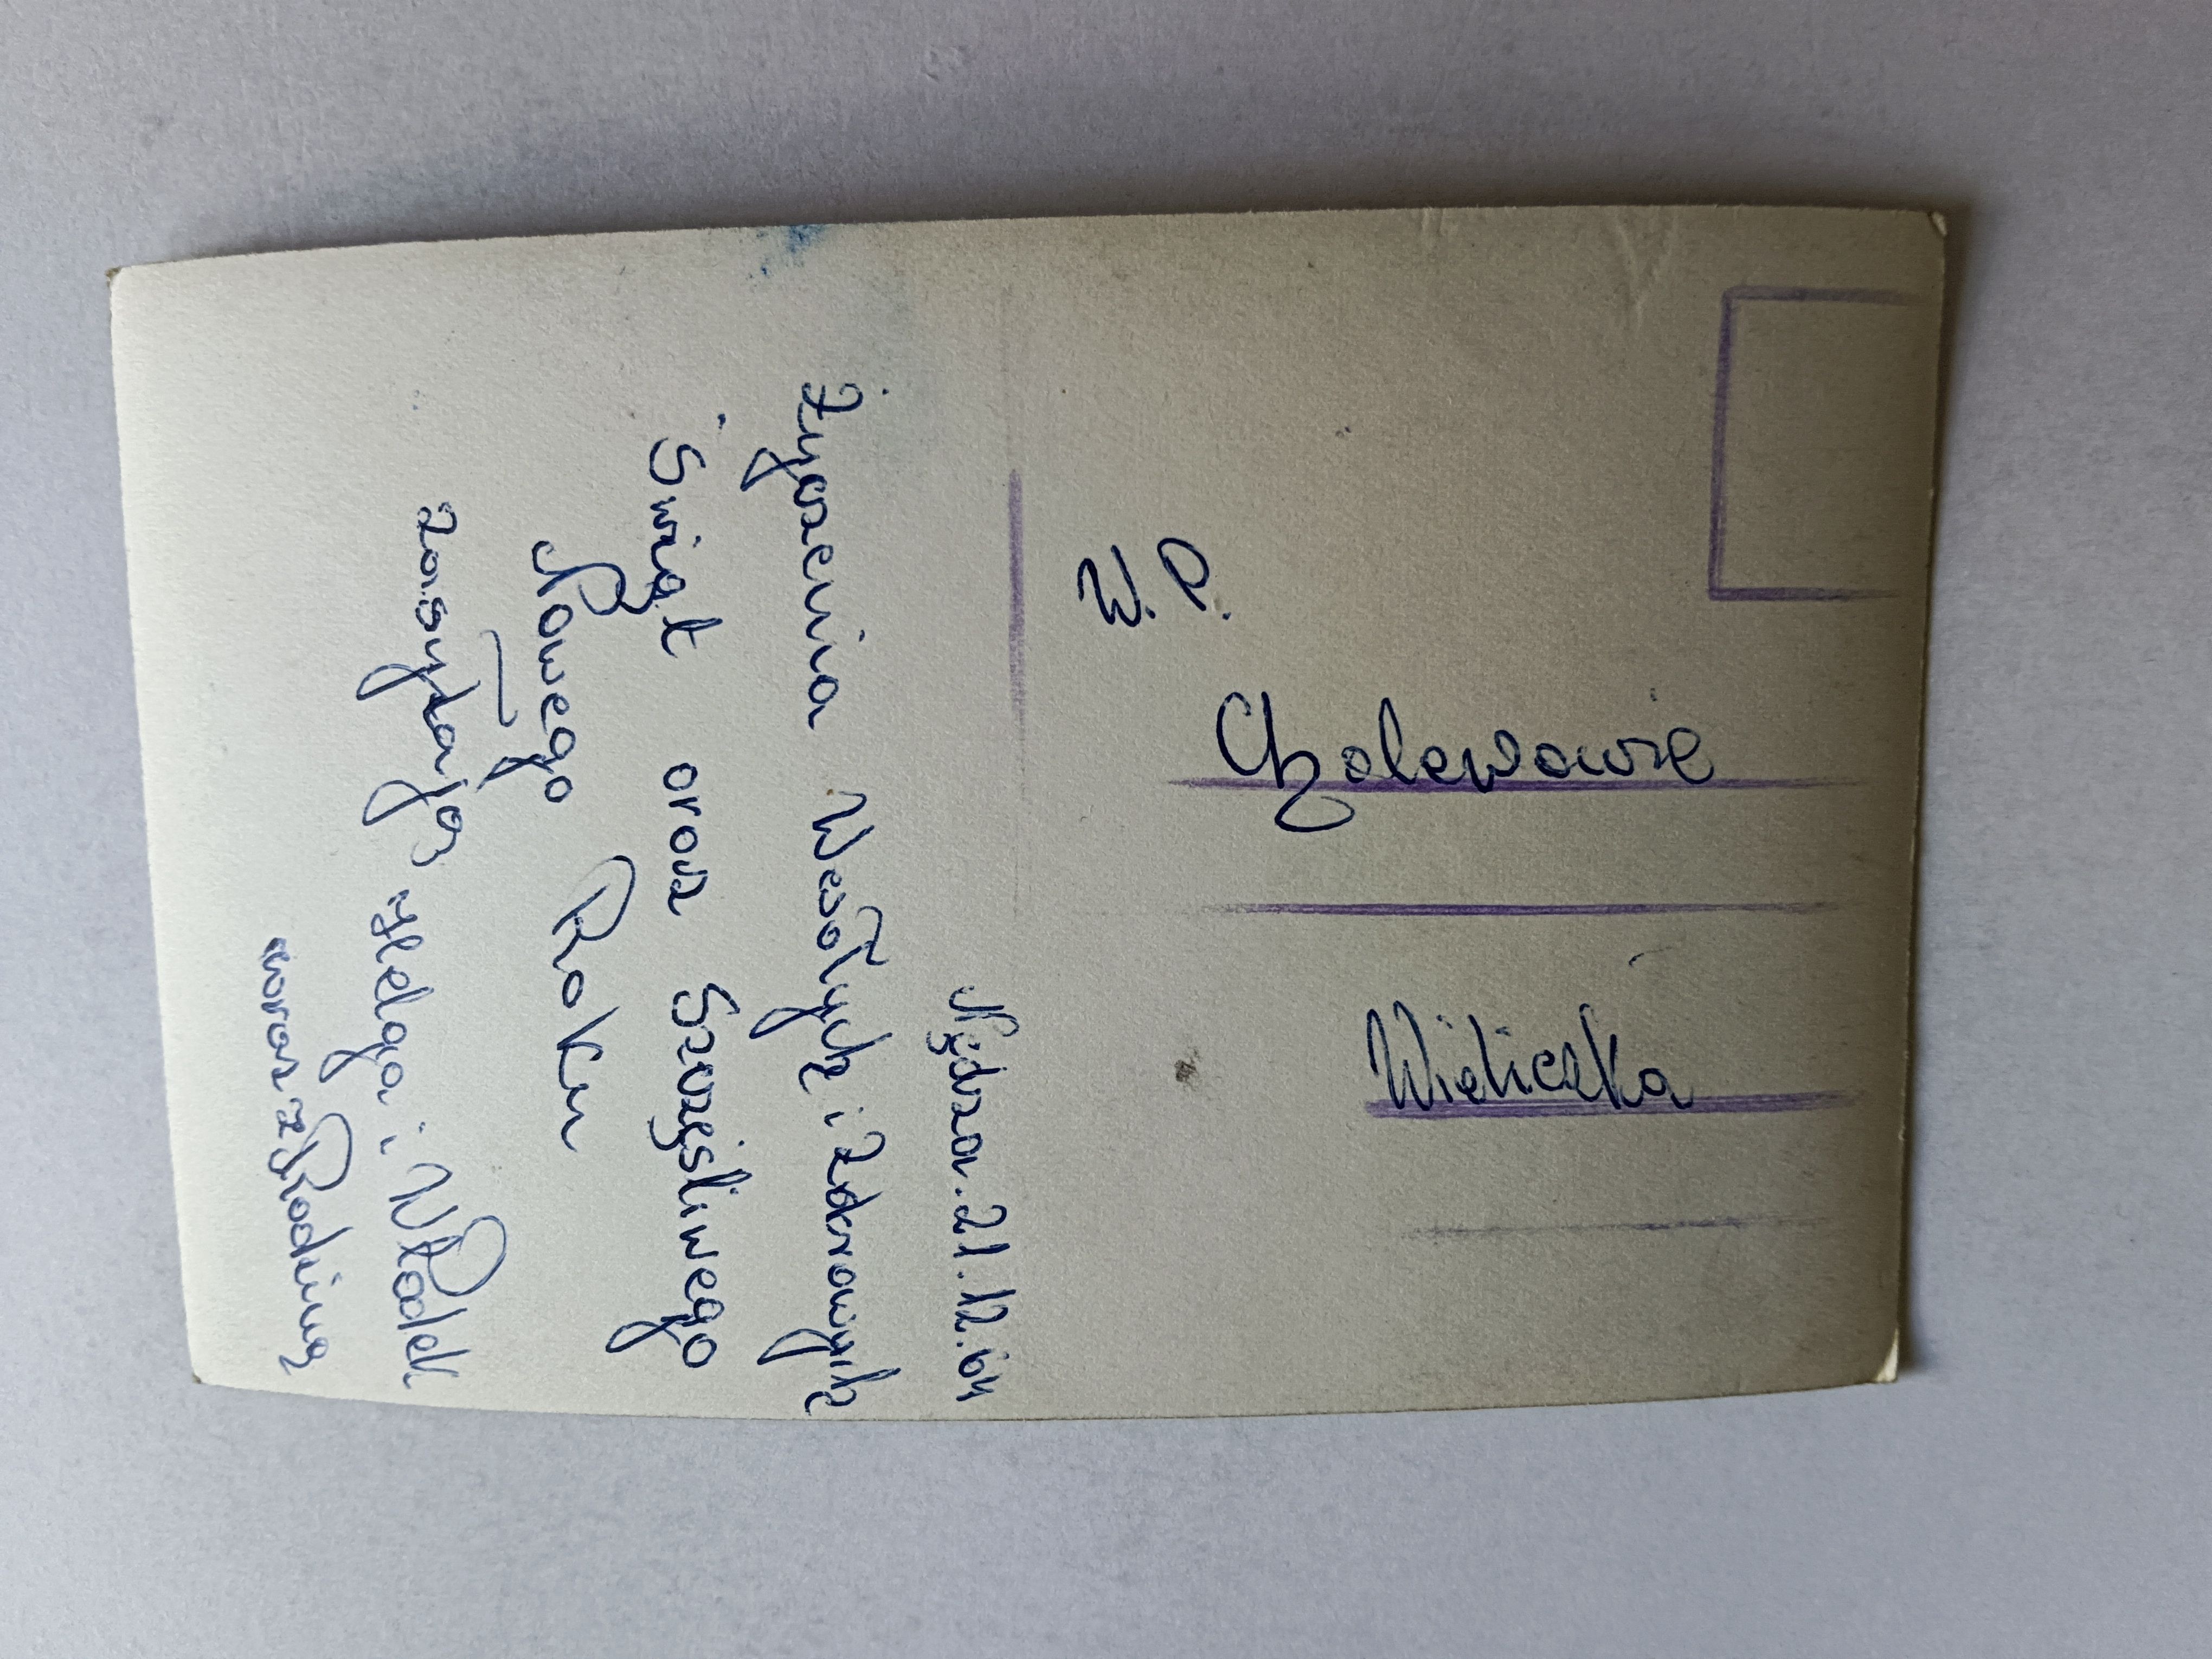 Nędza. 21.12.64
Życzenia Wesołych i Zdrowych
Świąt oraz Szczęśliwego
Nowego Roku
zasyłają Helga i Władek
wraz z Rodziną
W.P.
Wieliczka